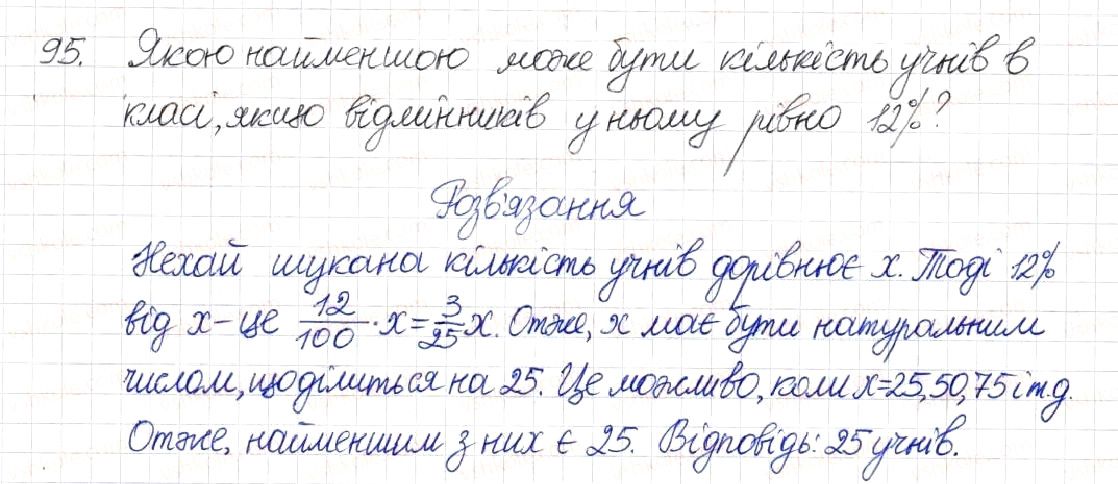 95. Якою найменшою може бути кількість учнів в
класі, якщо відмінників у ньому рівно 12%?
Розв'язання
Нехай шукана кількість учнів дорівнює x. Тоді 12%
від x – це 12/100 · x = 3/25 x. Отже, x має бути натуральним
числом, що ділиться на 25. Це можливо, коли x=25, 50, 75 і т.д.
Отже, найменшим з них є 25. Відповідь: 25 учнів.